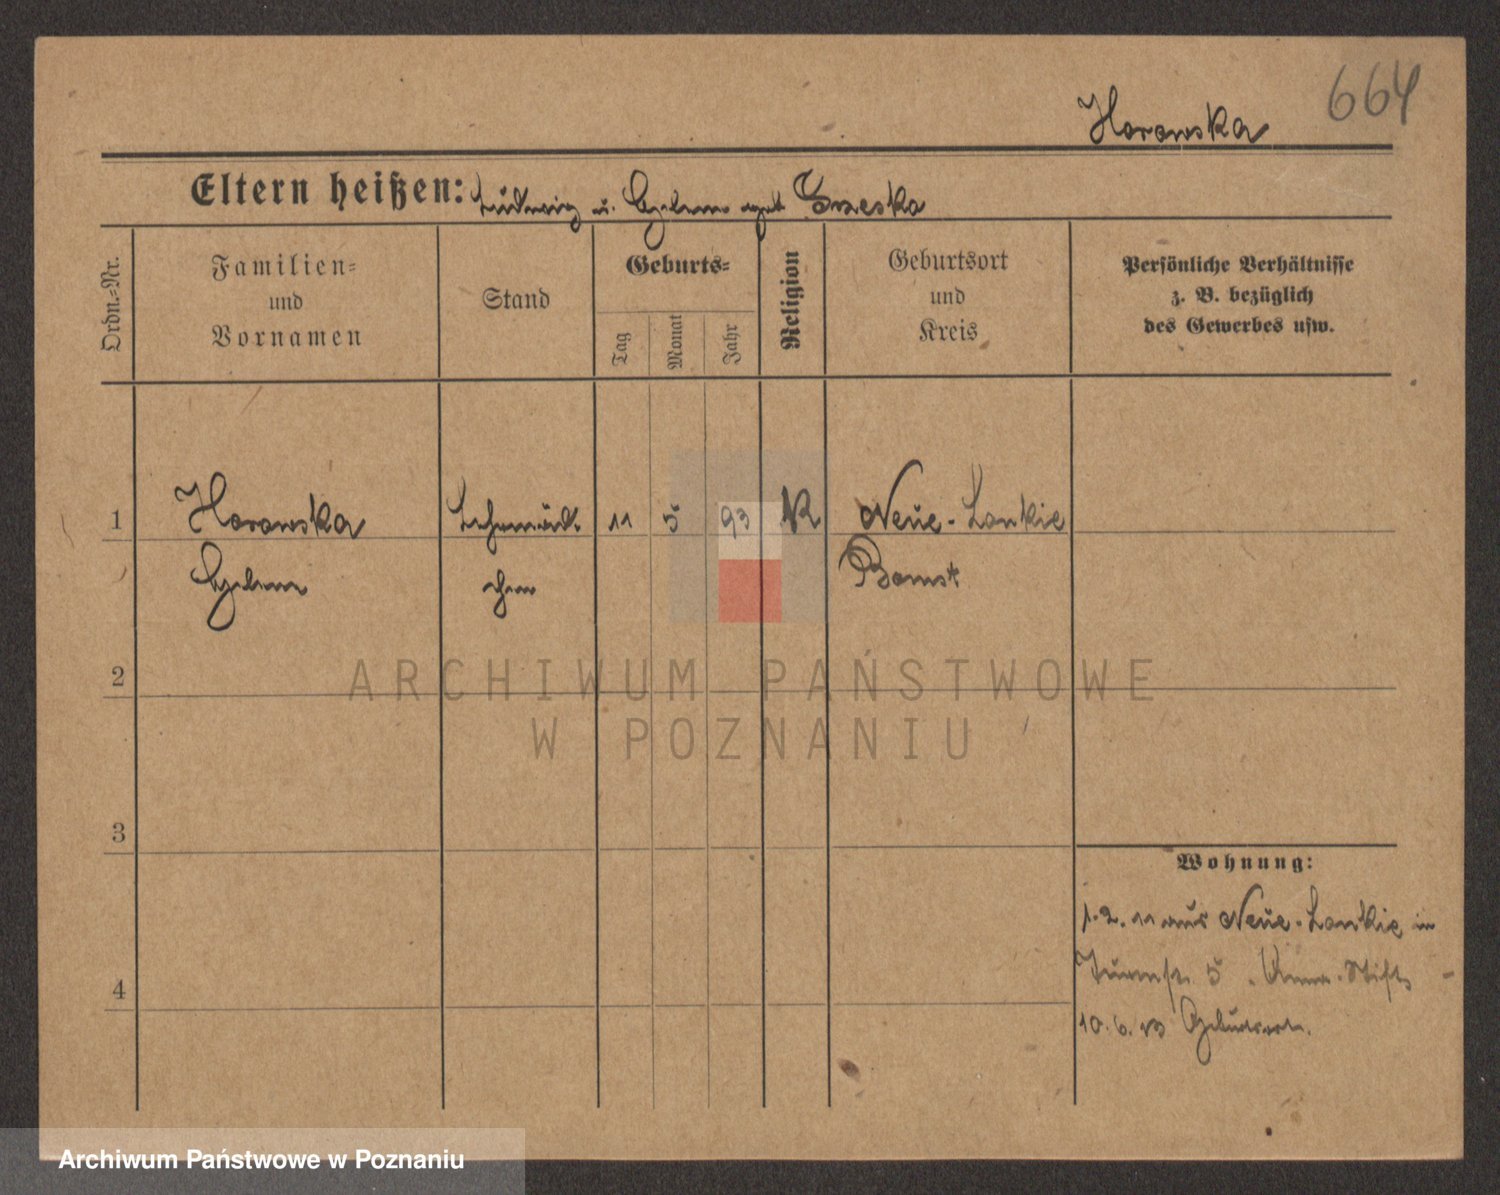 664
Horowska
Eltern heißen: Ludwig u. Helene geb
Ordn.-Nr.
Familien-
und
Vornamen
Stand
Geburts-
Tag
Monat
Jahr
Religion
Geburtsort
und
Kreis
Persönliche Verhältnisse
z. B. bezüglich
des Gewerbes usw.
1
Horowska
Helene
Lehrmäd-
chen
11
5
93
K
Neue-Lonkie
Bomst
2
3
4
Wohnung:
1. 2. 11 aus Neue-Lonkie in
Turmstr. 5 Anna-Stift
10. 6. 13 Geburtsorte.
ARCHIWUM PAŃSTWOWE
W POZNANIU
Archiwum Państwowe w Poznaniu